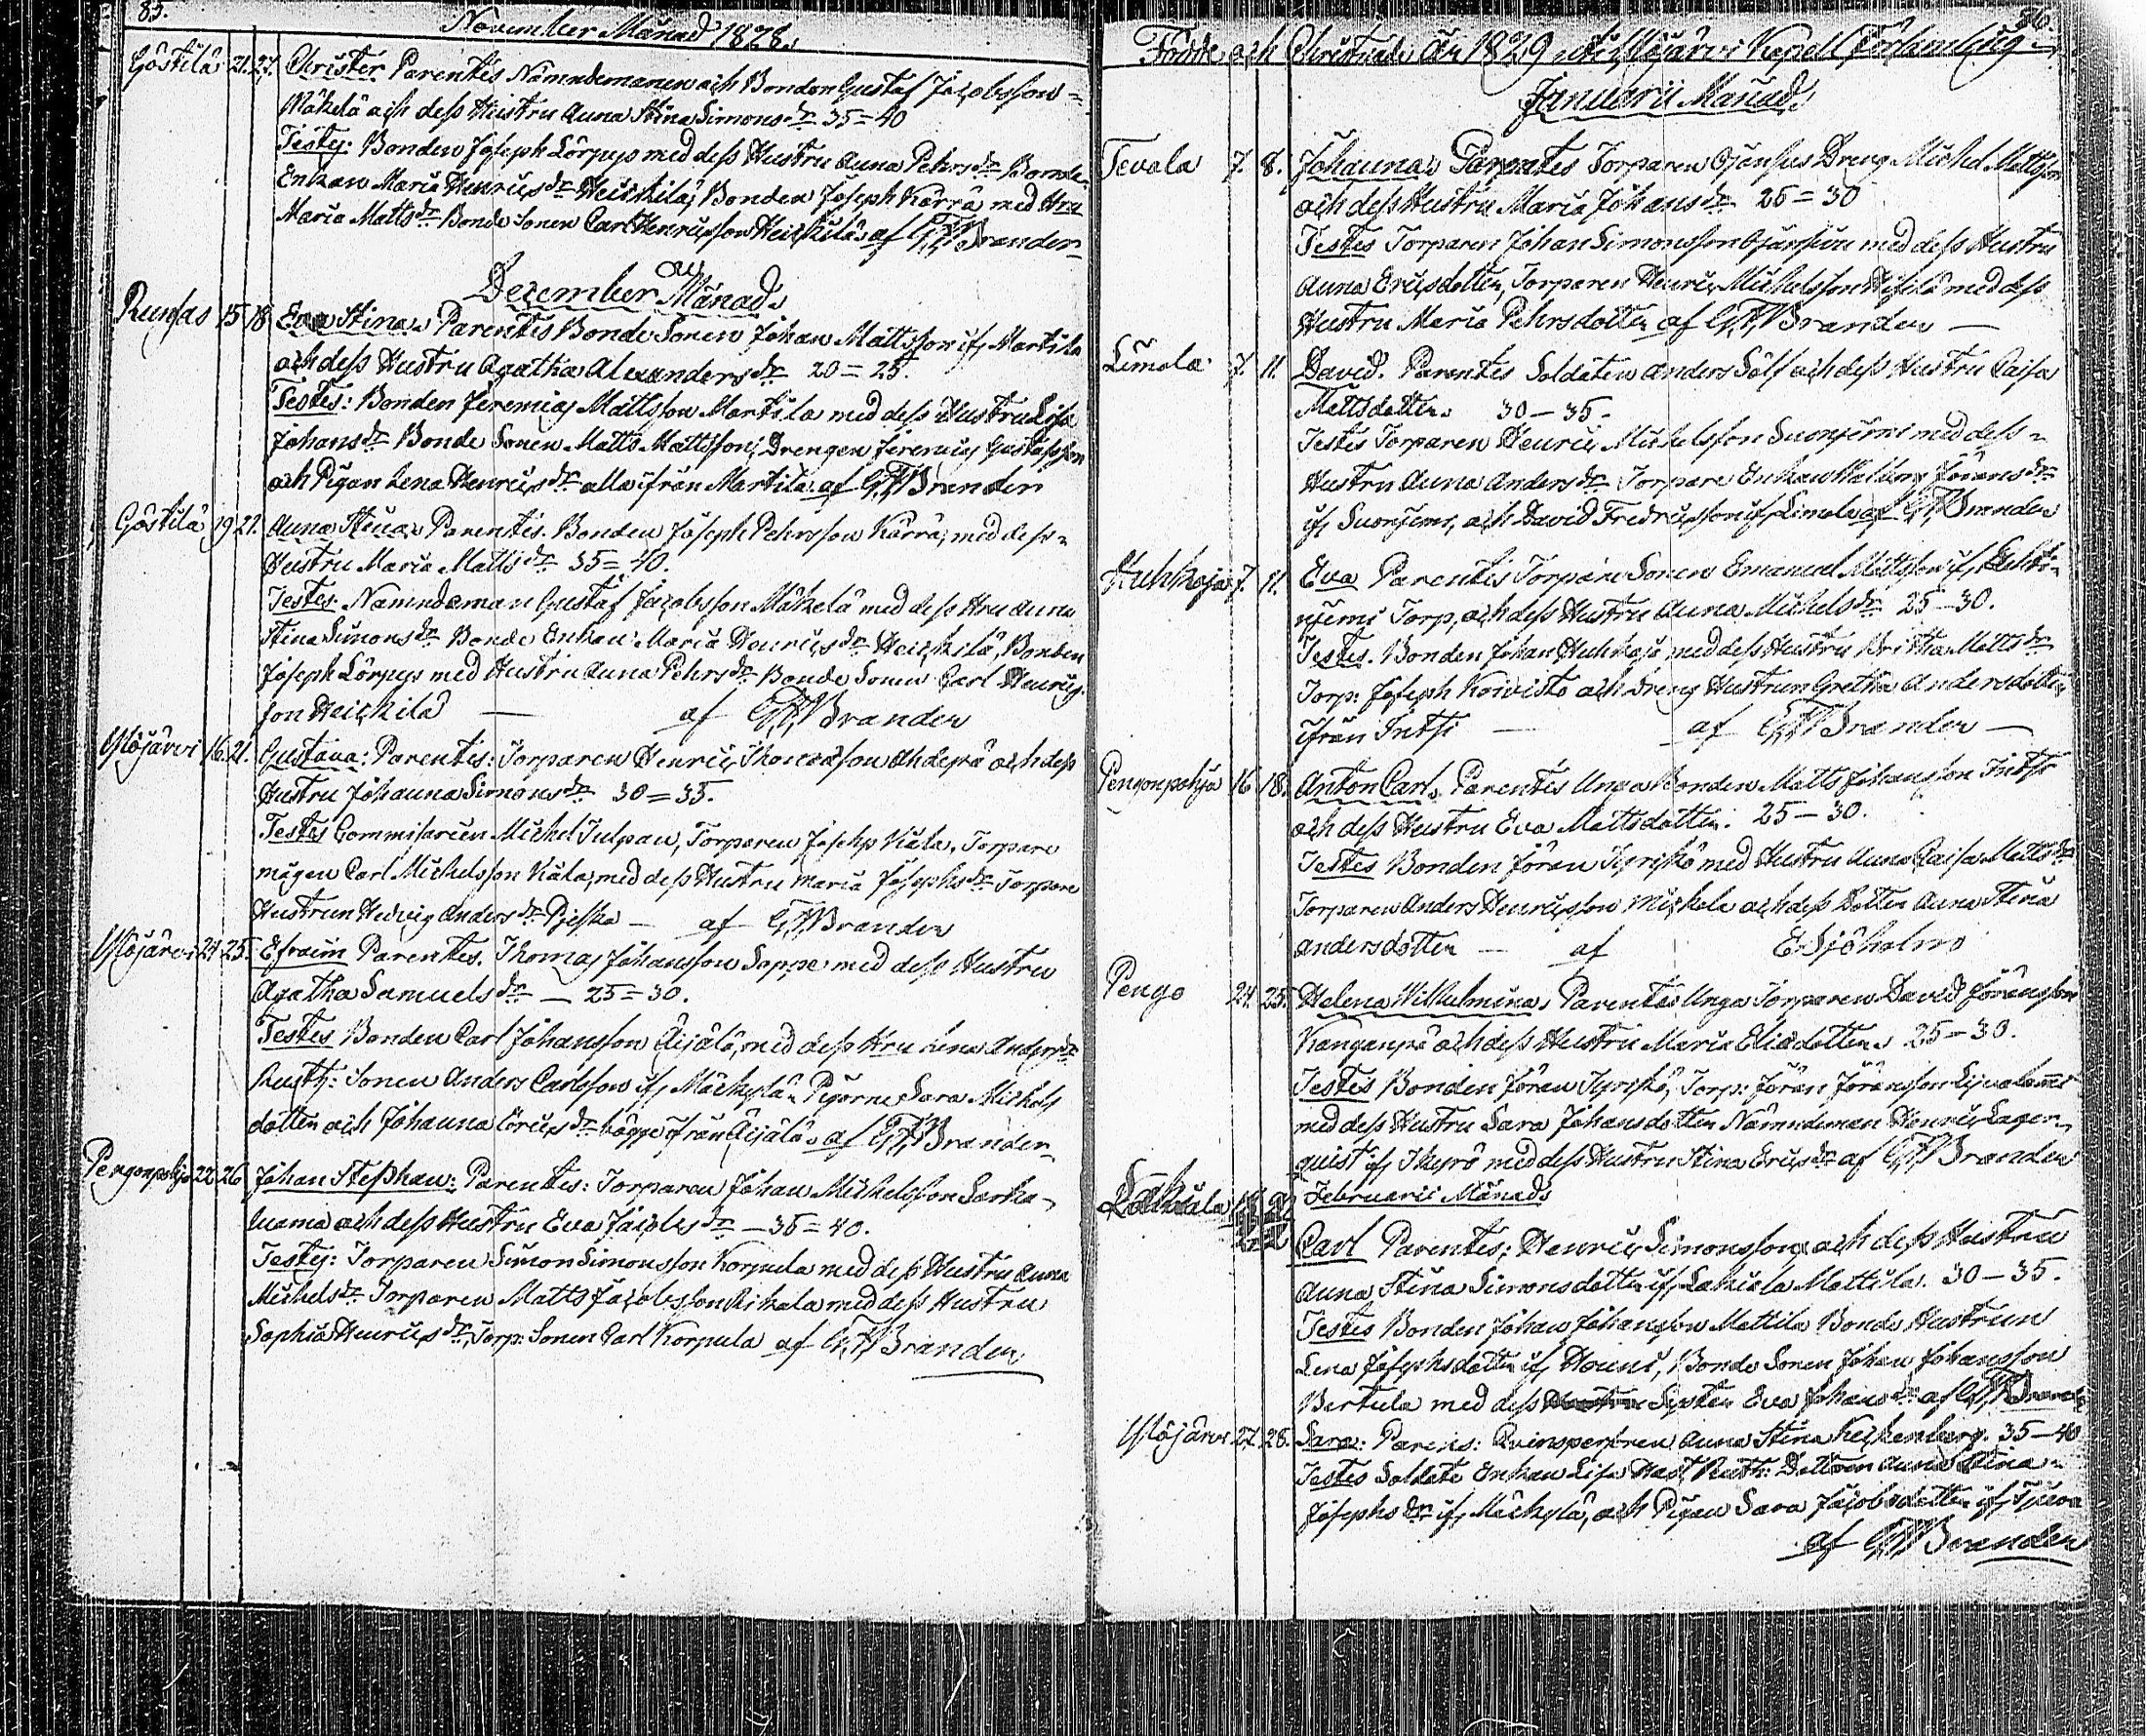 85.
November Månad 1828.
Göstilä 21. 27. Christer Parentes Nämndemannen och Bonden Gustaf Jacobsson
Mäkelä och dess Hustru Anna Stina Simonsdr 35=40
Testes: Bonden Joseph Lörpys med dess Hustru Anna Pehrsdr Bonde
Enkan Maria Henricsdr Heickilä, Bonden Joseph Kärrä med Hru
Maria Mattsdr Bonde Sonen Carl Henricsson Heickilä af GFBrander
December Månad
Runsas 15 18 Eva Stina. Parentes Bonde Sonen Johan Mattsson if. Martila
och dess Hustru Agatha Alexandersdr 20=25.
Testes: Bonden Jeremias Mattsson Martila med dess Hustru Lisa
Johansdr Bonde Sonen Matts Mattsson, Drengen Jeremias Gustafsson
och Pigan Lena Henricsdr alla ifrån Martila af GFBrander
Göstilä 19 21. Anna Stina. Parentes. Bonden Joseph Pehrsson Kärrä, med dess
Hustru Maria Mattsdr 35=40.
Testes. Nämndeman Gustaf Jacobsson Mäkelä med dess Hru Anna
Stina Simonsdr Bonde Enkan Maria Henricsdr Heickilä, Bonden
Joseph Lörpys med Hustru Anna Pehrsdr Bonde Sonen Carl Henrics
son Heickilä — af GFBrander
Ylöjärvi 16 21. Gustava: Parentes: Torparen Henric Thomasson och dess
Hustru Johanna Simonsdr 30=35.
Testes Commissarien Michel Julpau, Torparen Joseph Käla, Torpare
mågen Carl Michelsson Käla, med dess Hustru Maria Josephsdr Torpare
Hustrun Hedvig Andersdr — af GFBrander
Ylöjärvi 24 25. Efraim Parentes. Thomas Johansson Soppe med dess Hustru
Agatha Samuelsdr — 25=30.
Testes Bonden Carl Johansson Äijälä, med dess Hru Lena Andersdr
Rusth: Sonen Anders Carlsson if. Mäckylä. Pigorne Sara Michels
dotter och Johanna Ericsdr bägge ifrån Äijälä. af GFBrander
Pengonpohja 22 26 Johan Stephan: Parentes: Torparen Johan Michelsson Sarka
luama och dess Hustru Eva Jacobsdr — 35=40.
Testes: Torparen Simon Simonsson Korpula med dess Hustru Anna
Michelsdr Torparen Matts Jacobsson Rikala med dess Hustru
Sophia Henricsdr, Torp: Sonen Carl Korpula af GFBrander
86.
Födde och Christnade År 1829 uti Ylöjärvi Kapell Församling
Januarii Månad.
Tevala 7. 8. Johanna. Parentes Torparen Ojansus Dreng Michel Mattsson
och dess Hustru Maria Johansdr 25=30
Testes Torparen Johan Simonsson Ojansuu med dess Hustru
Anna Ericsdotter, Torparen Henric Michelsson med dess
Hustru Maria Pehrsdotter af GFBrander —
Limola 7. 11. David. Parentes Soldaten Anders Sölf och dess Hustru Caisa
Mattsdotter. 30—35.
Testes Torparen Henric Michelsson Suonjemi med dess
Hustru Anna Andersdr Torpare Enkan Walborg Jöransdr
if. Suonjemi, och David Fredricsson if. Limola af GFBrander
Huhkoja 7. 11. Eva Parentes Torpare Sonen Emanuel Mattsson if. Kulto
njemi Torp, och dess Hustru Anna Michelsdr 25—30.
Testes. Bonden Johan Huhkoja med dess Hustru Britha Mattsdr
Torp: Joseph Koivisto och Dreng Hustrun Gretha Andersdotter
ifrån Intti — af GFBrander —
Pengonpohja 16 18. Anton Carl. Parentes Unga Bonden Matts Johansson Intti
och dess Hustru Eva Mattsdotter. 25—30.
Testes Bonden Jöran Kyrskö med Hustru Anna Caisa Mattsdr
Torparen Anders Henricsson Mickola och dess Dotter Anna Stina
Andersdotter — af E. Sjöholm
Pengo 24. 25. Helena Wilhelmina. Parentes Unga Torparen David Jöransson
Kanganpä och dess Hustru Maria Eliædotter. 25—30.
Testes Bonden Jöran Kyrskö, Torp: Jöran Jöransson Lijvalami
med dess Hustru Sara Johansdotter Nämndeman Henric Lager
quist if. Ikyrö med dess Hustru Stina Ericsdr af GFBrander
Februarii Månad
Lakiala Carl Parentes: Henric Simonsson och dess Hustru
Anna Stina Simonsdotter if. Lakiala Mattila. 30—35.
Testes Bonden Johan Johansson Mattila Bonde Hustrun
Lena Josephsdotter if. Houni, Bonde Sonen Johan Johansson
Bertula med dess Syster Eva Johansdr af GFBrander
Ylöjärvi 27. 28. Sara: Parens: Qvinspersonen Anna Stina Keckenberg. 35—40
Testes Soldate Enkan Lisa Hast Rusth: Dottren Anna Stina
Josephsdr if. Mäckylä, och Pigan Sara Jacobsdotter if.
af GFBrander